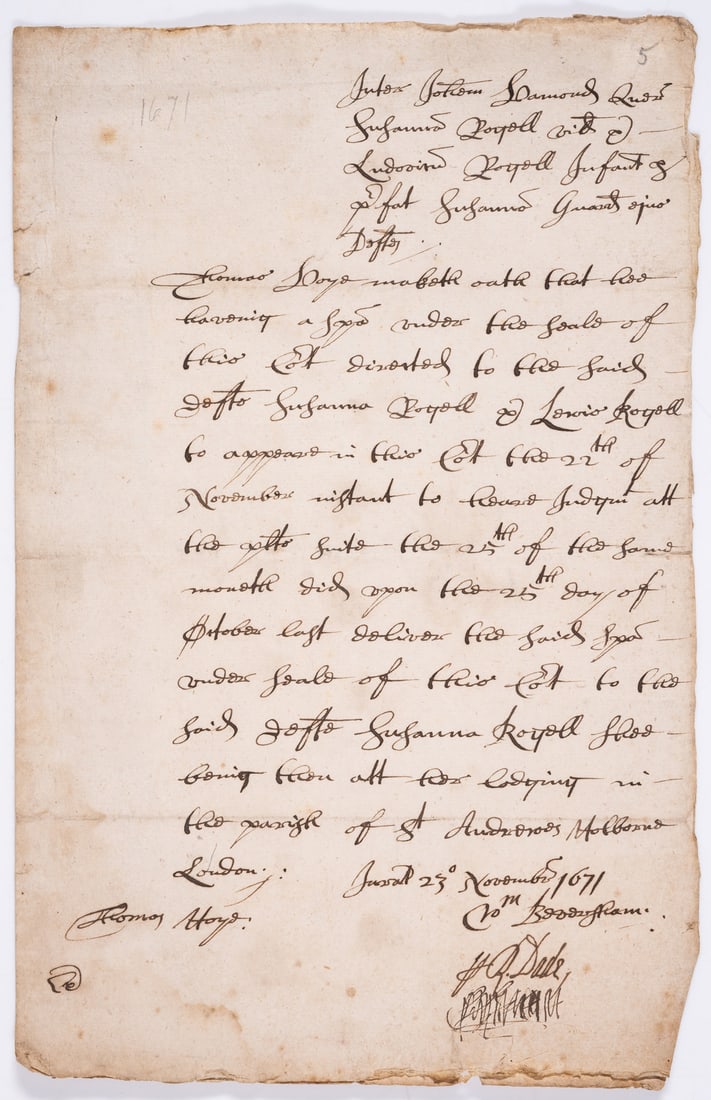 5
1671
Inter Joħem Hamond Quer
Susannā Rossell vid &
Ludovicū Rossell Infant p
p'fat Susannā Guard ejus
Deften
Thomas Hoye maketh oath that hee
haveing a spā under the seale of
this Cot directed to the said
defte Susanna Rossell & Lewis Rossell
to appeare in this Cot the 22th of
November instant to heare Judgmt att
the plts suite the 25th of the same
moneth did upon the 25th day of
October last deliver the said spā
under seale of this Cot to the
said defte Susanna Rossell shee
being then att her lodging in
the parish of St Andrewes Holborne
London.
Jurat 23o Novembr 1671
Wm Beversham.
Thomas Hoye:
Dade